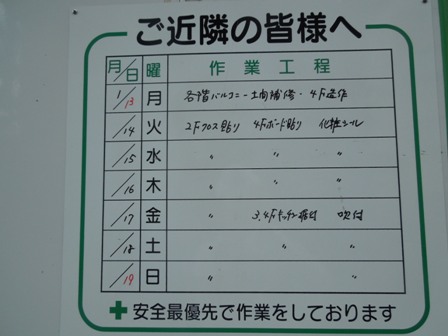 ご近隣の皆様へ
月/日 曜 作業工程
1/13 月 各階バルコニー土間補修・4F造作
/14 火 2Fクロス貼り 4Fボード貼り 化粧シール
/15 水 〃 〃 〃
/16 木 〃 〃 〃
/17 金 〃 3.4Fキッチン据付 吹付
/18 土 〃 〃 〃
/19 日 〃 〃
安全最優先で作業をしております